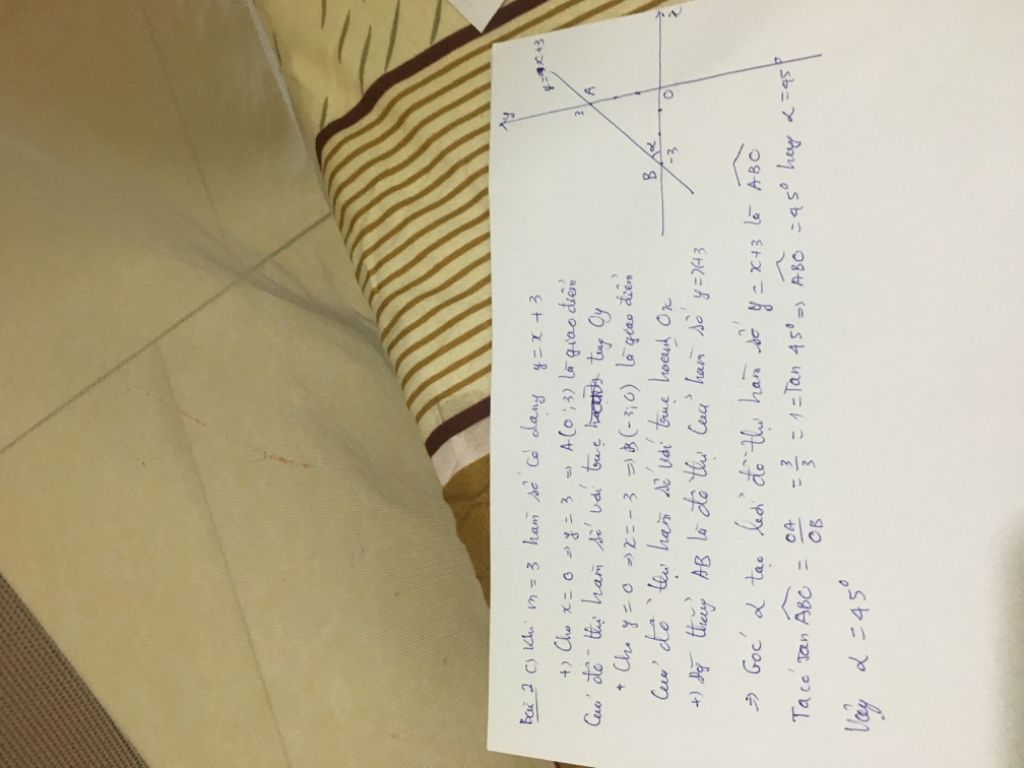 Bài 2 c) Khi m = 3 hàm số có dạng y = x + 3
+) Cho x = 0 => y = 3 => A(0;3) là giao điểm
Của đồ thị hàm số với trục tung Oy
+ Cho y = 0 => x = -3 => B(-3;0) là giao điểm
Của đồ thị hàm số với trục hoành Ox
+) thẳng AB là đồ thị của hàm số y = x+3
=> Góc α tạo bởi đồ thị hàm số y = x+3 là \widehat{ABO}
Ta có tan \widehat{ABO} = \frac{OA}{OB} = \frac{3}{3} = 1 = Tan 45⁰ => \widehat{ABO} = 45⁰ hay α = 45⁰
Vậy α = 45⁰
y
3
A
y = x+3
B
α
-3
O
x